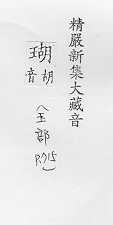 精嚴新集大藏音
瑚
音胡
(玉部
P.715)